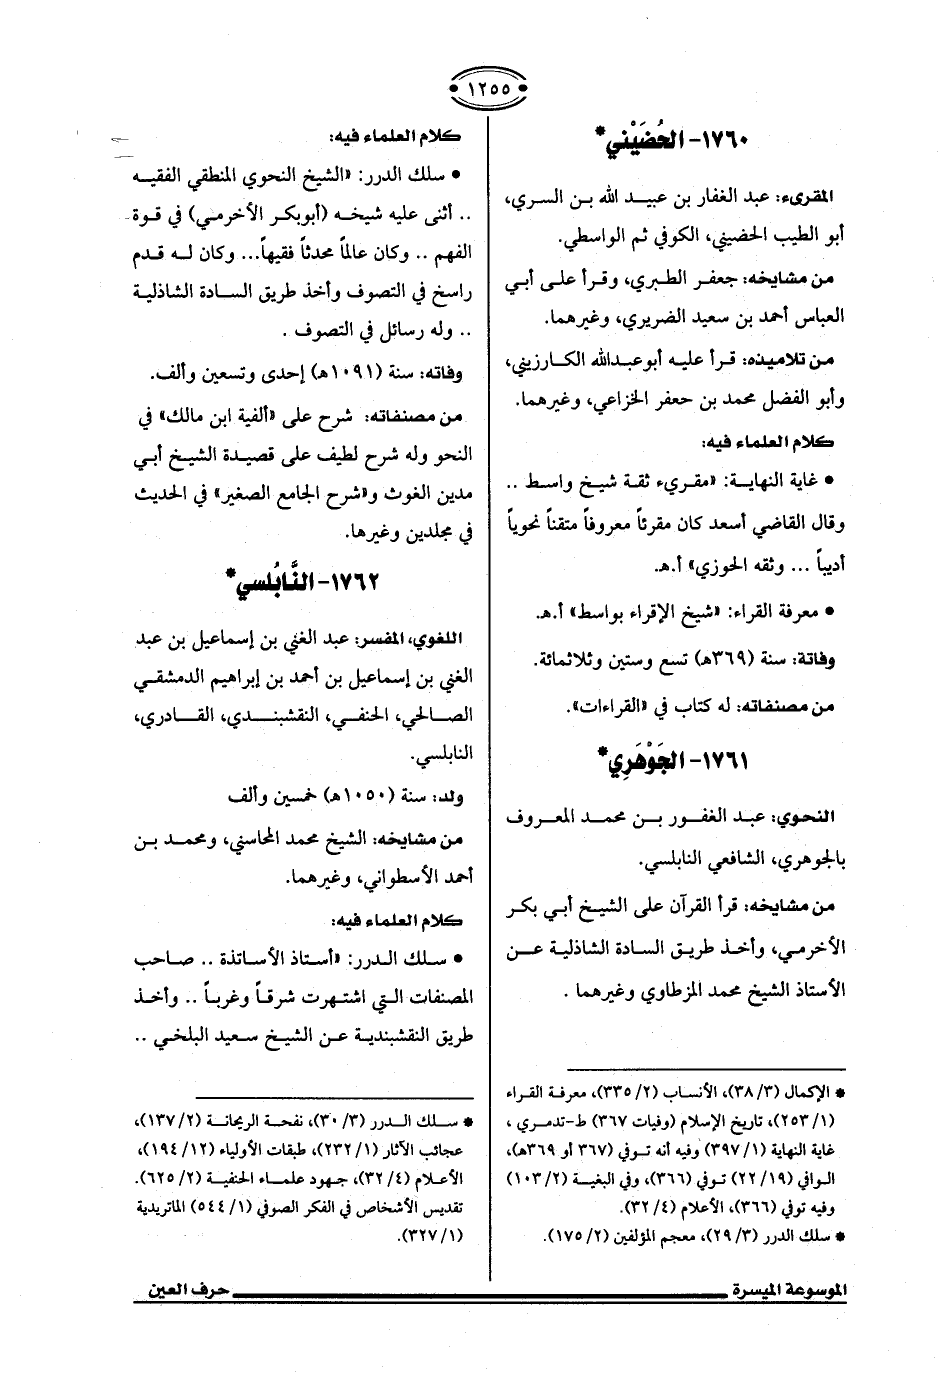 ١٢٥٥
١٧٦٠- الحُضَيْني*
المقرىء: عبد الغفار بن عبيد الله بن السري،
أبو الطيب الحضيني، الكوفي ثم الواسطي.
من مشايخه: جعفر الطبري، وقرأ على أبي
العباس أحمد بن سعيد الضريري، وغيرهما.
من تلاميذه: قرأ عليه أبوعبدالله الكارزيني،
وأبو الفضل محمد بن جعفر الخزاعي، وغيرهما.
كلام العلماء فيه:
• غاية النهاية: «مقريء ثقة شيخ واسط ..
وقال القاضي أسعد كان مقرئاً معروفاً متقناً نحوياً
أديباً ... وثقه الحوزي» أ.هـ.
• معرفة القراء: «شيخ الإقراء بواسط» أ.هـ.
وفاتة: سنة (٣٦٩هـ) تسع وستين وثلاثمائة.
من مصنفاته: له كتاب في «القراءات».
١٧٦١- الجَوْهَرِي*
النحوي: عبد الغفور بن محمد المعروف
بالجوهري، الشافعي النابلسي.
من مشايخه: قرأ القرآن على الشيخ أبي بكر
الأخرمي، وأخذ طريق السادة الشاذلية عن
الأستاذ الشيخ محمد المزطاوي وغيرهما .
* الإكمال (٣/ ٣٨)، الأنساب (٢/ ٣٣٥)، معرفة القراء
(١/ ٢٥٣)، تاريخ الإسلام (وفيات ٣٦٧) ط-تدمري ،
غاية النهاية (١/ ٣٩٧) وفيه أنه توفي (٣٦٧ أو ٣٦٩هـ)،
الوافي (١٩/ ٢٢) توفي (٣٦٦)، وفي البغية (٢/ ١٠٣)
وفيه توفي (٣٦٦)، الأعلام (٤/ ٣٢).
* سلك الدرر (٣/ ٢٩)، معجم المؤلفين (٢/ ١٧٥).
كلام العلماء فيه:
• سلك الدرر: «الشيخ النحوي المنطقي الفقيه
.. أثنى عليه شيخه (أبوبكر الأخرمي) في قوة
الفهم .. وكان عالماً محدثاً فقيهاً... وكان له قدم
راسخ في التصوف وأخذ طريق السادة الشاذلية
.. وله رسائل في التصوف .
وفاته: سنة (١٠٩١هـ) إحدى وتسعين وألف.
من مصنفاته: شرح على «ألفية ابن مالك» في
النحو وله شرح لطيف على قصيدة الشيخ أبي
مدين الغوث و«شرح الجامع الصغير» في الحديث
في مجلدين وغيرها.
١٧٦٢- النَّابُلسي*
اللغوي، المفسر: عبد الغني بن إسماعيل بن عبد
الغني بن إسماعيل بن أحمد بن إبراهيم الدمشقي
الصالحي، الحنفي، النقشبندي، القادري،
النابلسي.
ولد: سنة (١٠٥٠هـ) خمسين وألف
من مشايخه: الشيخ محمد المحاسني، ومحمد بن
أحمد الأسطواني، وغيرهما.
كلام العلماء فيه:
• سلك الدرر: «أستاذ الأساتذة .. صاحب
المصنفات التي اشتهرت شرقاً وغرباً .. وأخذ
طريق النقشبندية عن الشيخ سعيد البلخي ..
* سلك الدرر (٣/ ٣٠)، نفحة الريحانة (٢/ ١٣٧)،
عجائب الآثار (١/ ٢٣٢)، طبقات الأولياء (١٢/ ١٩٤)،
الأعلام (٤/ ٣٢)، جهود علماء الحنفية (٢/ ٦٢٥).
تقديس الأشخاص في الفكر الصوفي (١/ ٥٤٤) الماتريدية
(١/ ٣٢٧).
الموسوعة الميسرة
حرف العين